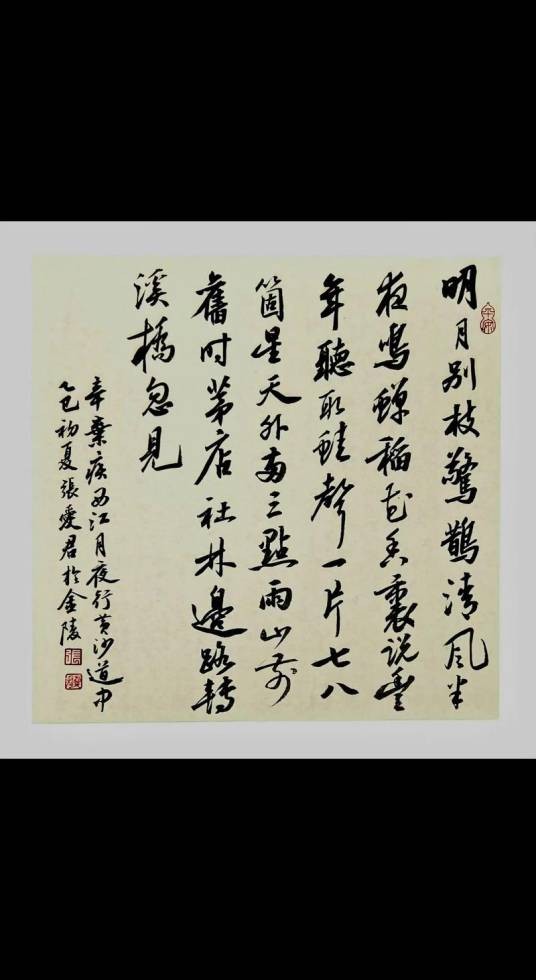 明月别枝驚鵲清風半
夜鳴蟬稻花香裏説豐
年聽取蛙聲一片七八
箇星天外兩三點雨山前
舊時茅店社林邊路轉
溪橋忽見
辛棄疾西江月夜行黄沙道中
乙巳初夏張愛君於金陵
張